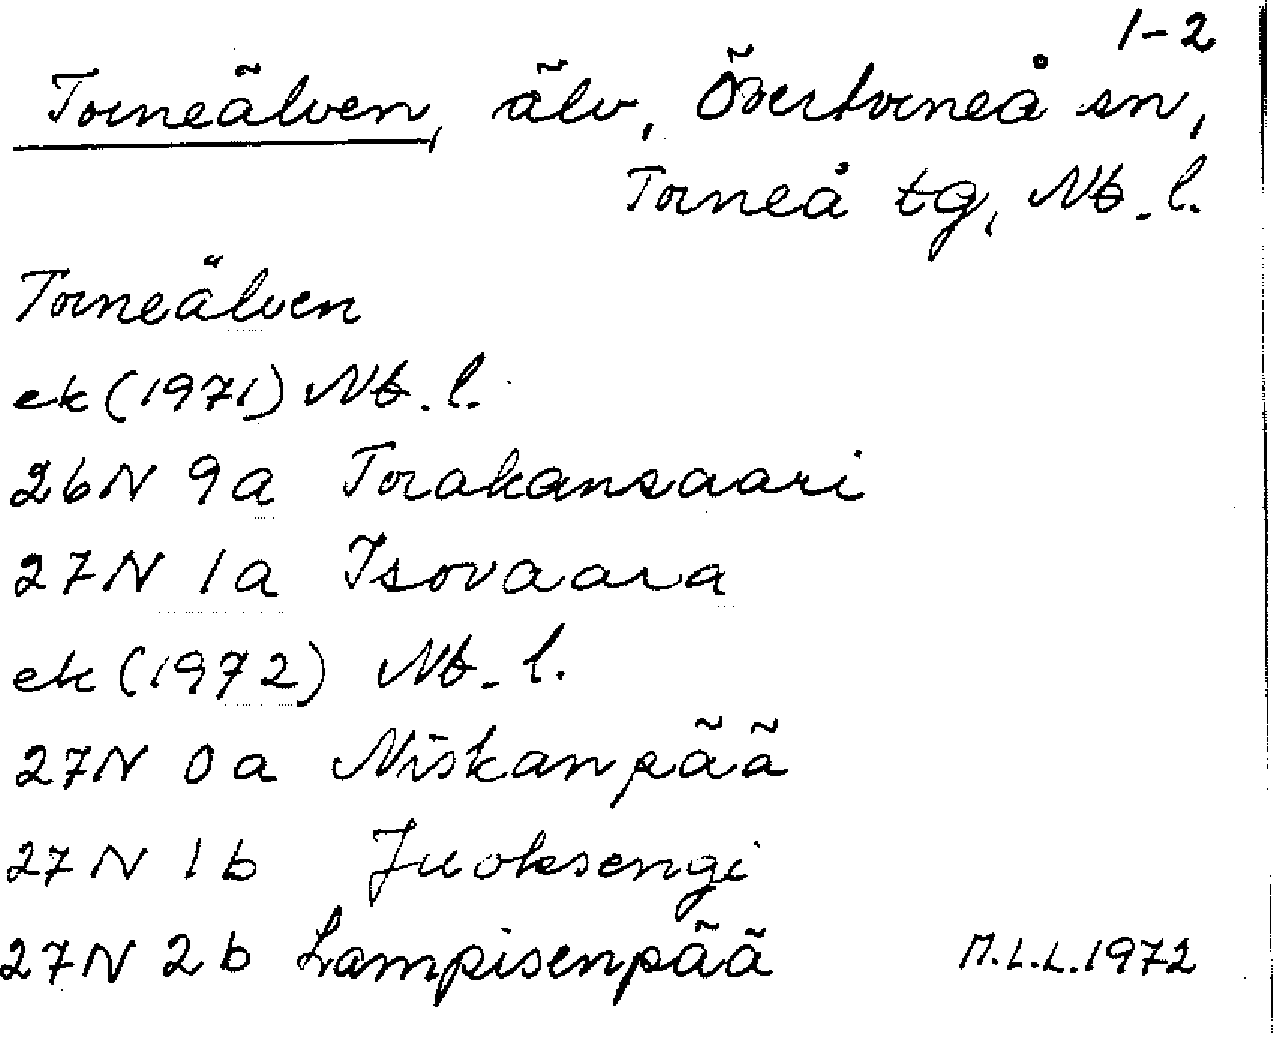 1-2
Torneälven, älv, Övertorneå sn,
Torneå tg, Nb. l.
Torneälven
ek (1971) Nb. l.
26N 9a Torakansaari
27N 1a Isovaara
ek (1972) Nb. l.
27N 0a Niskanpää
27N 1b Juoksengi
27N 2b Lampisenpää M.L.L. 1972